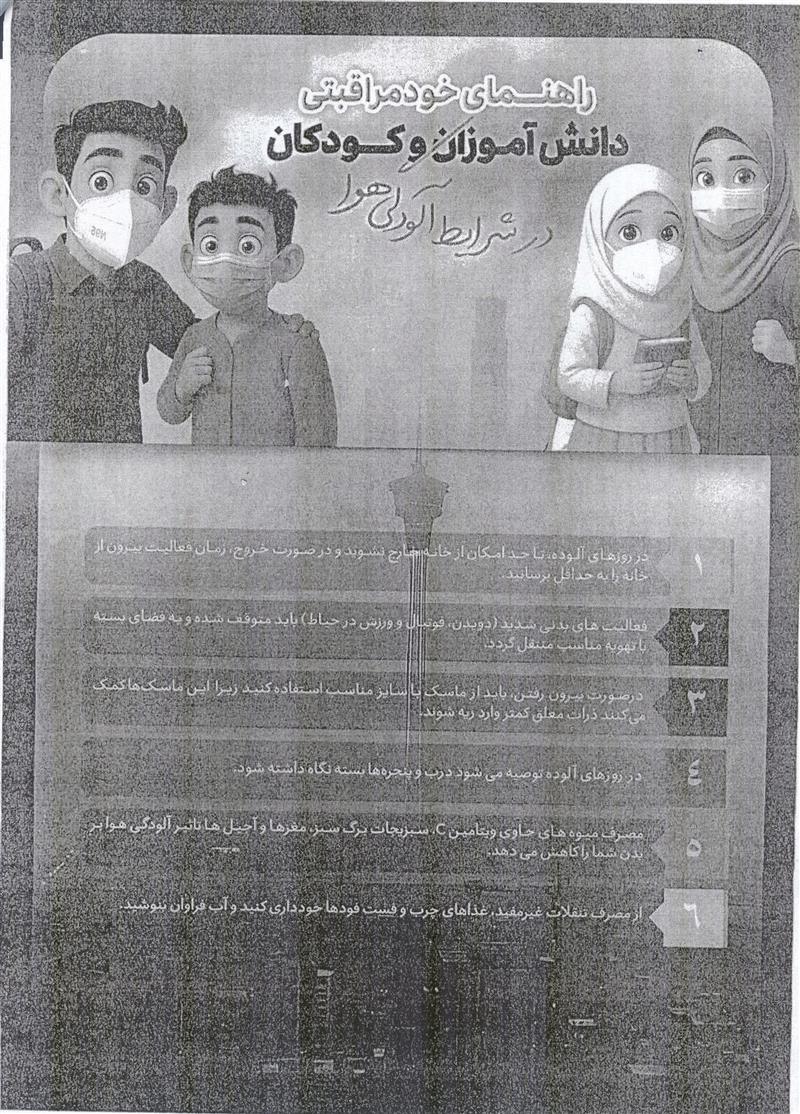 راهنمای خودمراقبتی
دانش آموزان و کودکان
در شرایط آلودگی هوا
N95
۱
در روزهای آلوده، تا حد امکان از خانه خارج نشوید و در صورت خروج، زمان فعالیت بیرون از
خانه را به حداقل برسانید.
۲
فعالیت های بدنی شدید (دویدن، فوتبال و ورزش در حیاط) باید متوقف شده و به فضای بسته
با تهویه مناسب منتقل گردد.
۳
درصورت بیرون رفتن، باید از ماسک با سایز مناسب استفاده کنید زیرا این ماسک‌ها کمک
می‌کنند ذرات معلق کمتر وارد ریه شوند.
٤
در روزهای آلوده توصیه می شود درب و پنجره‌ها بسته نگاه داشته شود.
۵
مصرف میوه های حاوی ویتامین C، سبزیجات برگ سبز، مغزها و آجیل ها تاثیر آلودگی هوا بر
بدن شما را کاهش می دهد.
٦
از مصرف تنقلات غیرمفید، غذاهای چرب و فست فودها خودداری کنید و آب فراوان بنوشید.